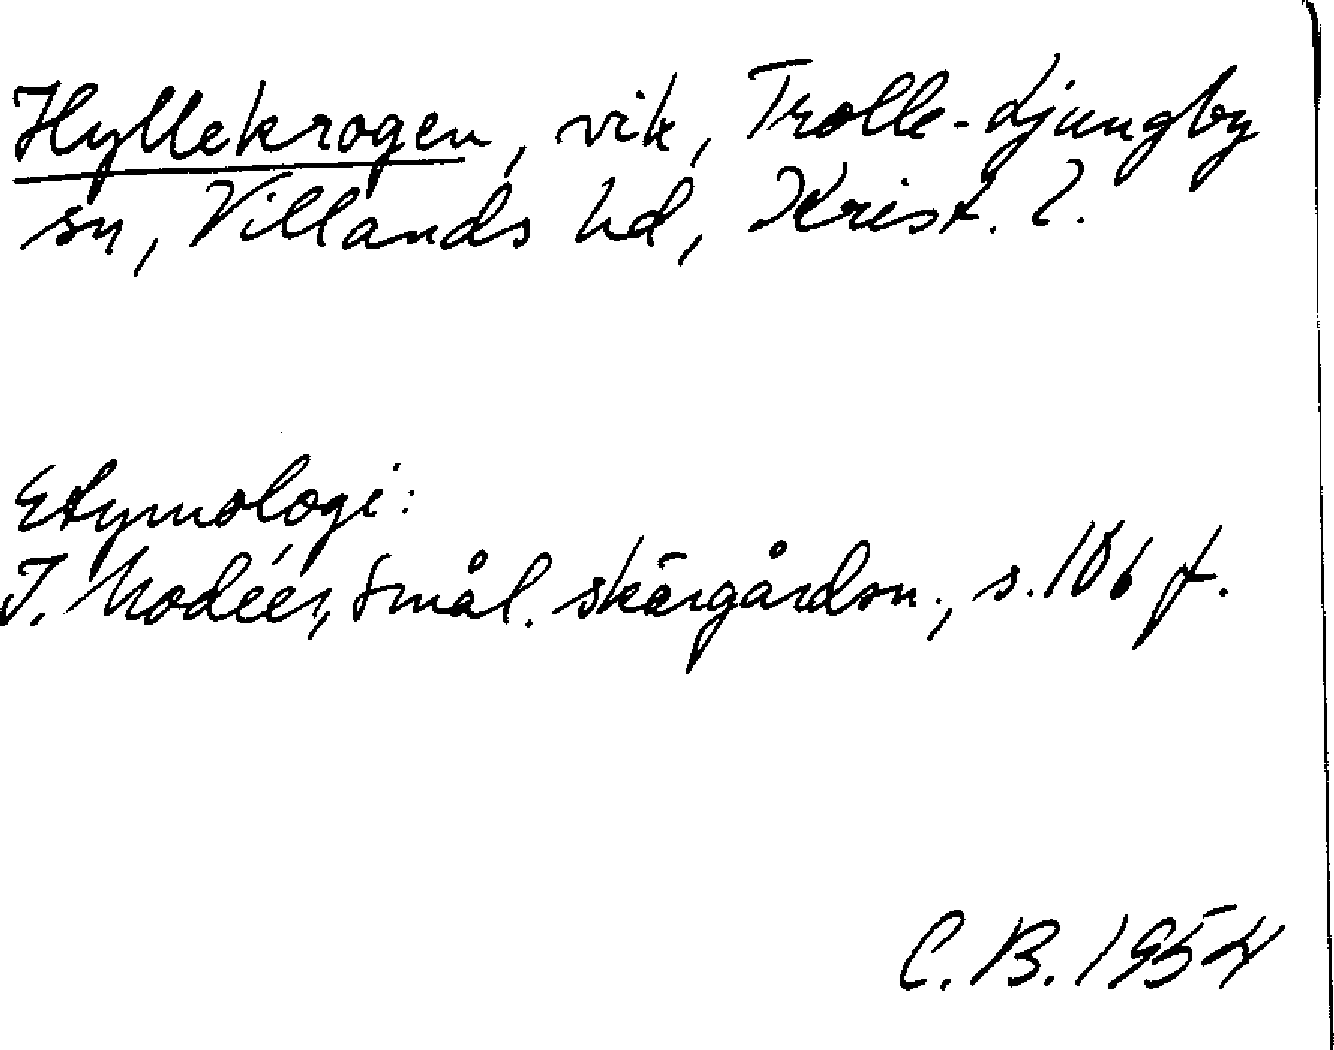 Hyllekrogen, vik, Trolle-Ljungby
sn, Villands hd, Krist. l.
Etymologi:
I. Modéer, Smål. skärgårdsn., s. 106 f.
C. B. 1954